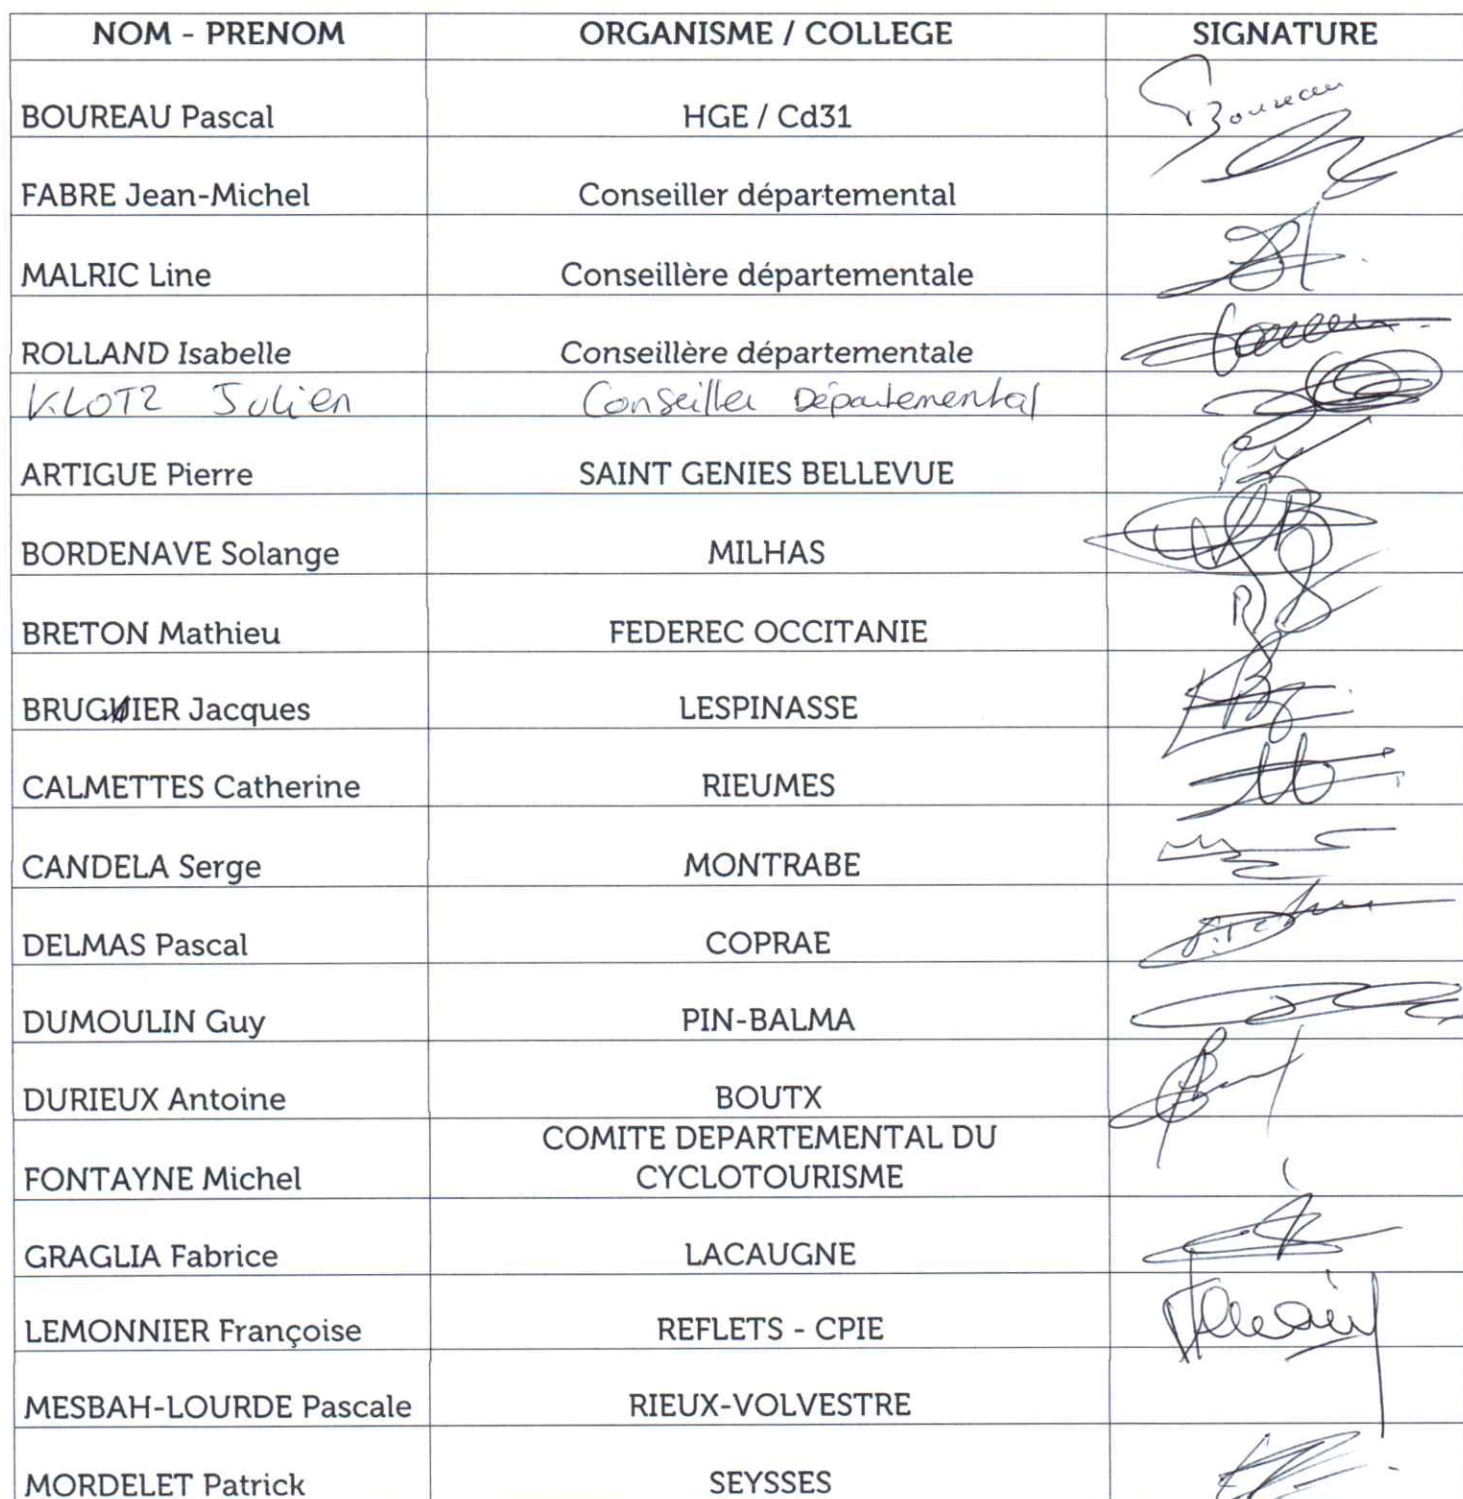 NOM - PRENOM ORGANISME / COLLEGE SIGNATURE
BOUREAU Pascal HGE / Cd31 Boureau
FABRE Jean-Michel Conseiller départemental
MALRIC Line Conseillère départementale
ROLLAND Isabelle Conseillère départementale
KLOTZ Julien Conseiller Départemental
ARTIGUE Pierre SAINT GENIES BELLEVUE
BORDENAVE Solange MILHAS
BRETON Mathieu FEDEREC OCCITANIE
Jacques LESPINASSE
CALMETTES Catherine RIEUMES
CANDELA Serge MONTRABE
DELMAS Pascal COPRAE
DUMOULIN Guy PIN-BALMA
DURIEUX Antoine BOUTX
COMITE DEPARTEMENTAL DU
FONTAYNE Michel CYCLOTOURISME
GRAGLIA Fabrice LACAUGNE
LEMONNIER Françoise REFLETS - CPIE
MESBAH-LOURDE Pascale RIEUX-VOLVESTRE
MORDELET Patrick SEYSSES